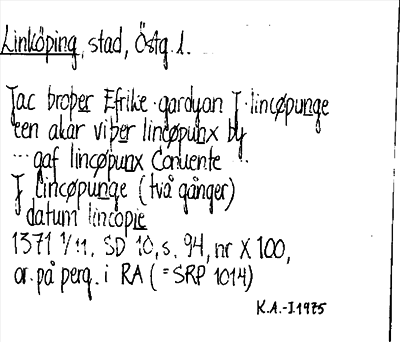 Linköping, stad, Östg. l.
Jac broþer Efrike · gardyan J · lincøpunge
een akar viþer lincøpunx by
... gaf lincøpunx Conuente ..
J Lincøpunge (två gånger)
datum lincopie
1371 1/11. SD 10, s. 94, nr X 100,
or. på perg. i RA (=SRP 1014)
K.A.-I.1975